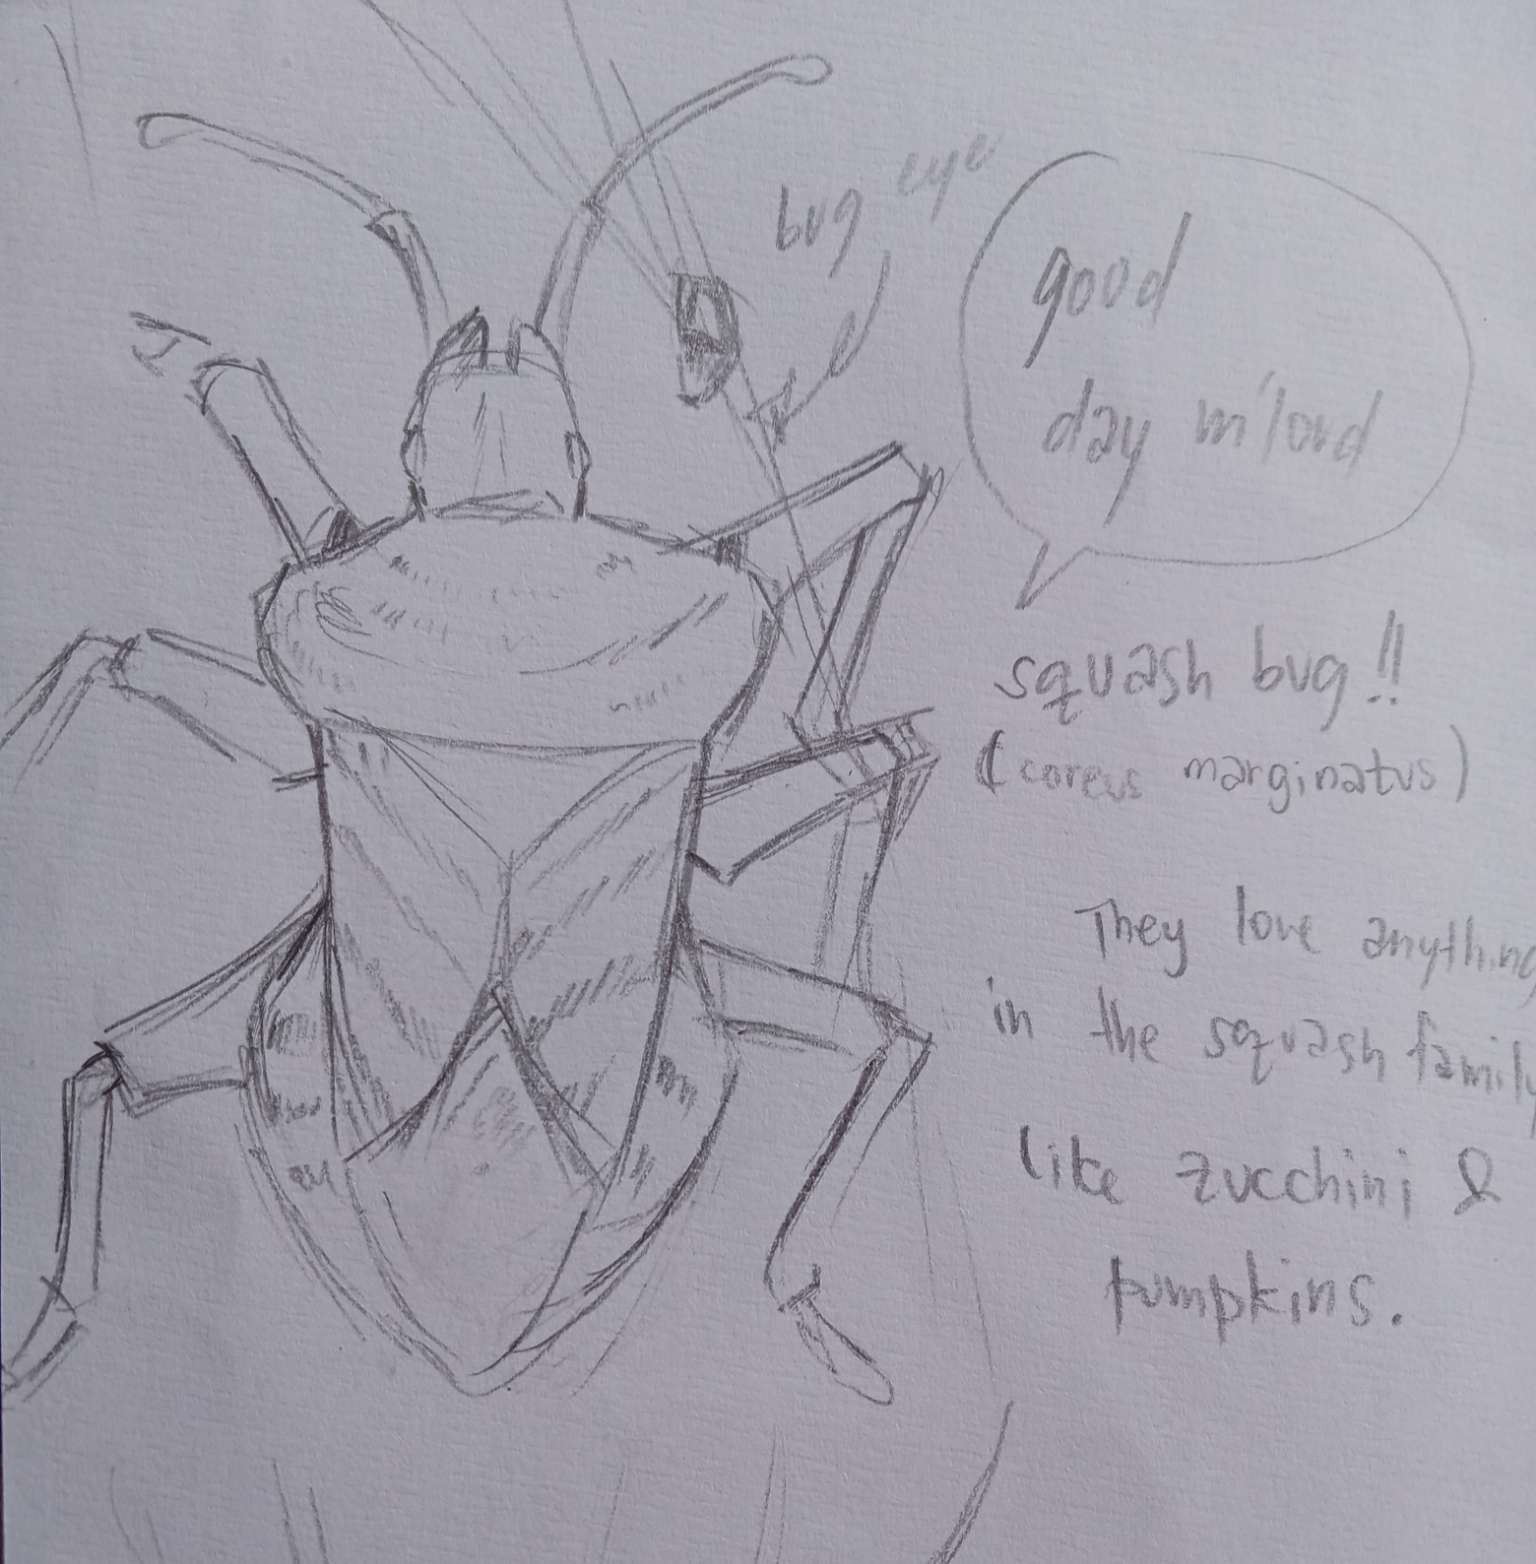 bug eye
good
day m'lord
squash bug!!
(coreus marginatus)
They love anything
in the squash family
like zucchini &
pumpkins.